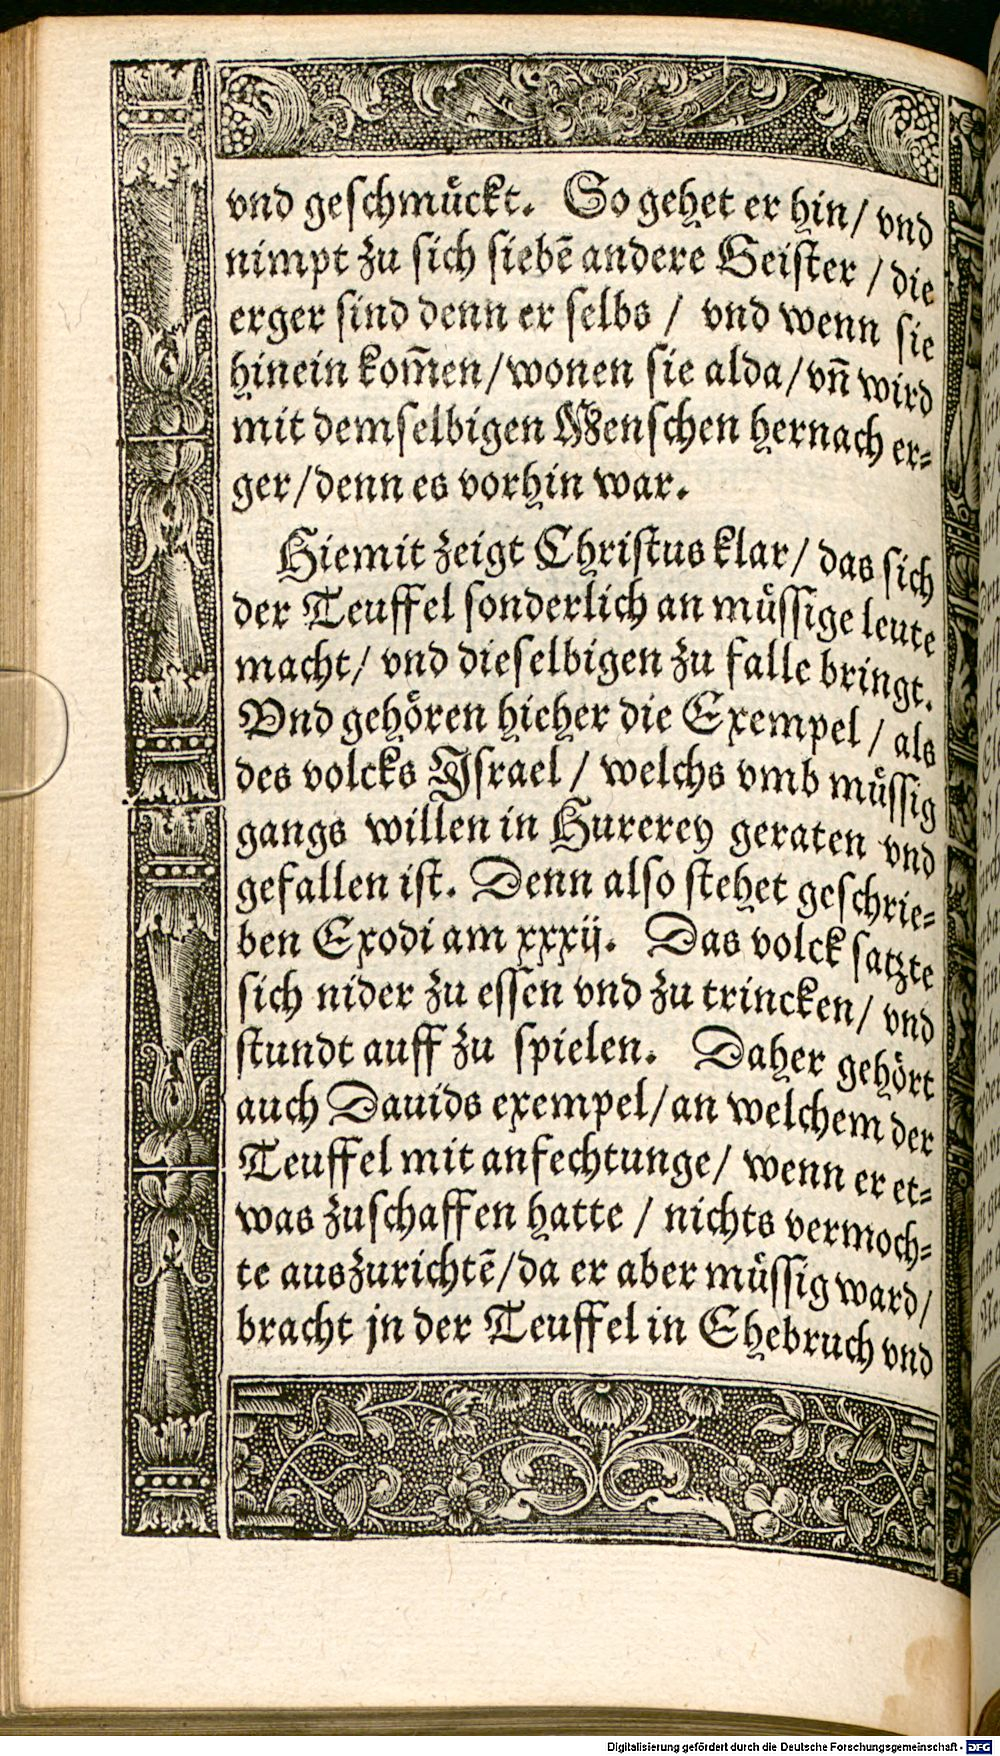 vnd geschmuͤckt. So gehet er hin/ vnd
nimpt zu sich siebē andere Geister / die
erger sind denn er selbs / vnd wenn sie
hinein kom̄en/wonen sie alda/vn̄ wird
mit demselbigen Menschen hernach er=
ger/denn es vorhin war.
Hiemit zeigt Christus klar/ das sich
der Teuffel sonderlich an muͤssige leute
macht/ vnd dieselbigen zu falle bringt.
Vnd gehoͤren hieher die Exempel / als
des volcks Israel / welchs vmb muͤssig
gangs willen in Hurerey geraten vnd
gefallen ist. Denn also stehet geschrie=
ben Exodi am xxxij. Das volck satzte
sich nider zu essen vnd zu trincken/ vnd
stundt auff zu spielen. Daher gehoͤrt
auch Dauids exempel/an welchem der
Teuffel mit anfechtunge/ wenn er et=
was zuschaffen hatte / nichts vermoch=
te auszurichtē/da er aber muͤssig ward/
bracht jn der Teuffel in Ehebruch vnd
Digitalisierung gefördert durch die Deutsche Forschungsgemeinschaft - DFG